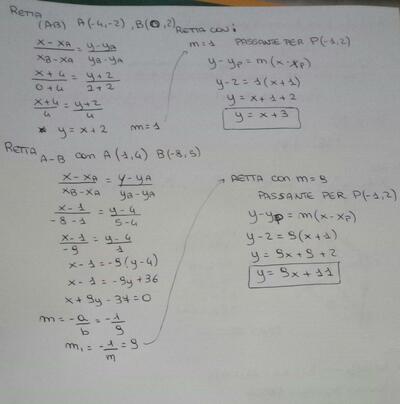 RETTA (AB) A(-4,-2), B(0,2)
x-xA / xB-xA = y-yA / yB-yA
x+4 / 0+4 = y+2 / 2+2
x+4 / 4 = y+2 / 4
y = x+2 m=1
RETTA CON
m=1 PASSANTE PER P(-1,2)
y-yP = m(x-xP)
y-2 = 1(x+1)
y = x+1+2
y = x+3
RETTA A-B con A(1,4) B(-8,5)
x-xA / xB-xA = y-yA / yB-yA
x-1 / -8-1 = y-4 / 5-4
x-1 / -9 = y-4 / 1
x-1 = -9(y-4)
x-1 = -9y+36
x+9y-37=0
m = -a/b = -1/9
m₁ = -1/m = 9
RETTA con m=9
PASSANTE PER P(-1,2)
y-yP = m(x-xP)
y-2 = 9(x+1)
y = 9x+9+2
y = 9x+11